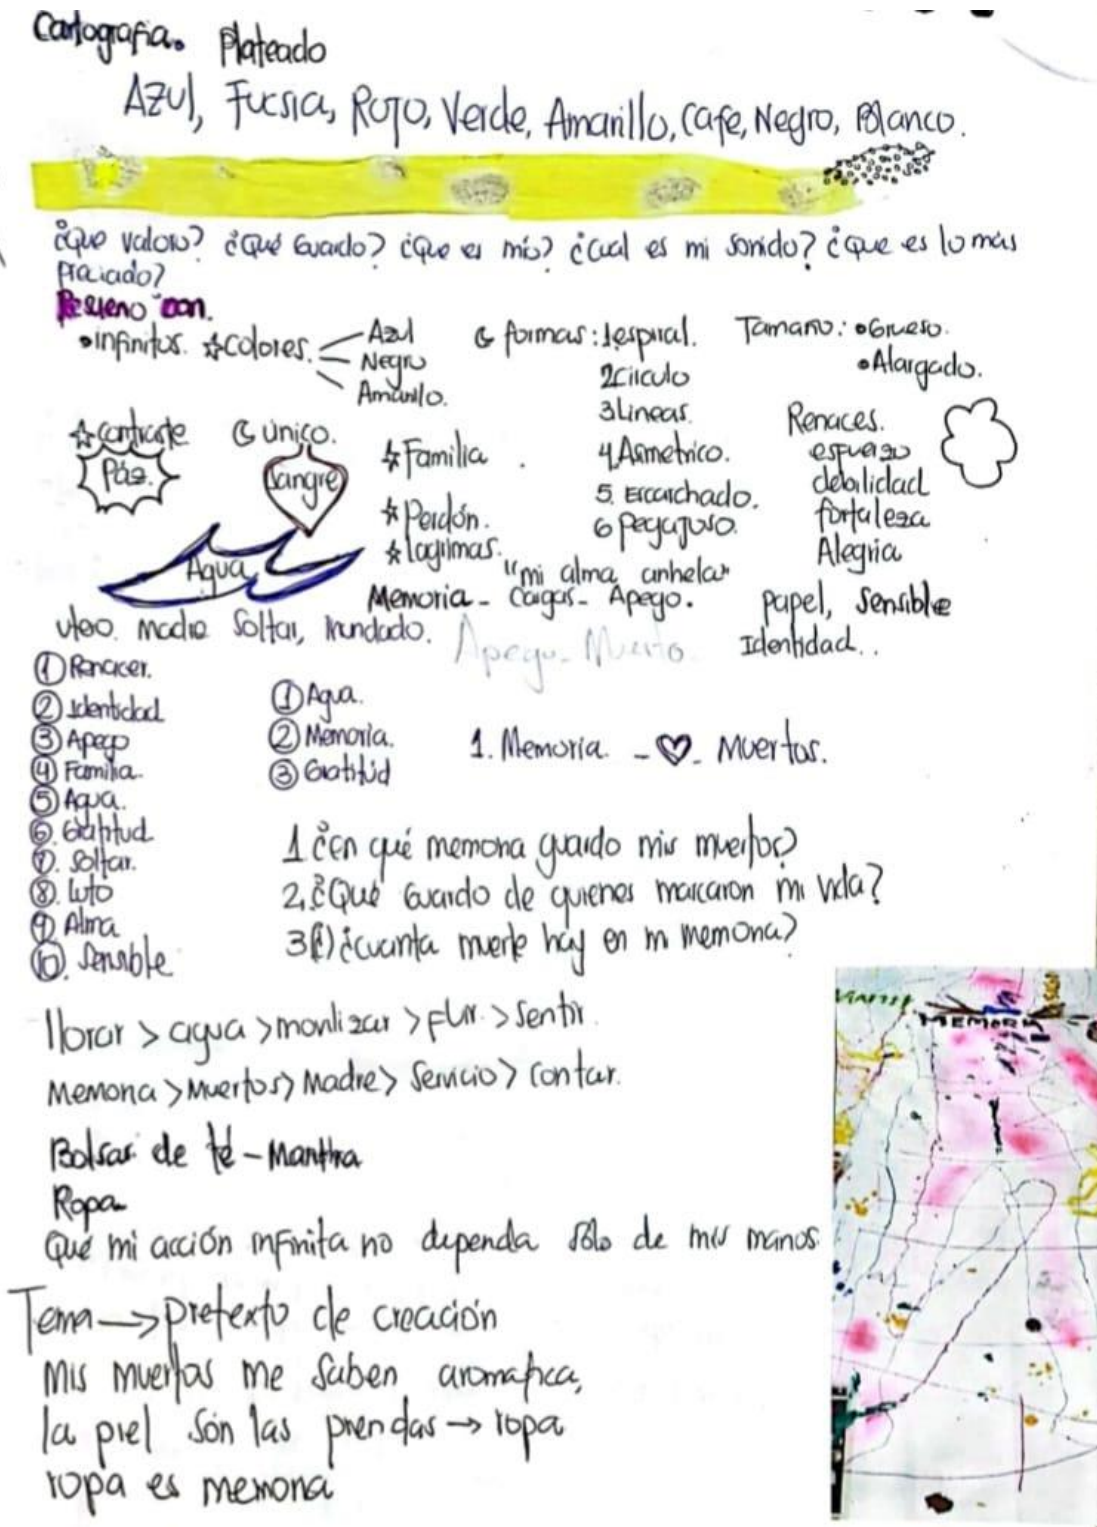 Cartografía. Plateado
Azul, Fucsia, Rojo, Verde, Amarillo, Cafe, Negro, Blanco.
¿Que valoro? ¿Qué Guardo? ¿Que es mío? ¿Cual es mi sonido? ¿que es lo más
preciado?
con.
•infinitos. ☆colores. Azul
Negro
Amarillo.
formas: 1espiral.
2Circulo
3Lineas.
4Asimetrico.
5. Escarchado.
6 pegajoso.
Tamaño: •Grueso.
•Alargado.
☆Contraste
Páz.
unico.
Sangre
☆Familia
☆Perdón.
☆lagrimas.
Renaces.
esfuerzo
debilidad
fortaleza
Alegria
Agua
"mi alma anhela"
Memoria - Cargas - Apego.
papel, Sensible
Identidad..
utero. madre Soltar, Inundado.
Apego. Muerto.
① Renacer.
② Identidad
③ Apego
④ Familia.
⑤ Agua.
⑥ Gratitud
⑦. Soltar.
⑧. Luto
⑨ Alma
⑩. Sensible
① Agua.
② Memoria.
③ Gratitud
1. Memoria - ♡ - Muertos.
1 ¿en qué memoria guardo mis muertos?
2. ¿Qué Guardo de quienes marcaron mi vida?
3 ¿cuanta muerte hay en mi memoria?
llorar > agua > > fluir. > Sentir.
Memoria > Muertos > Madre > Servicio > contar.
Bolsas de té - Manthra
Ropa
Qué mi acción infinita no dependa sólo de mis manos.
Tema → pretexto de creación
Mis muertos me saben aromatica,
la piel són las prendas → ropa
ropa es memoria
MEMORIA